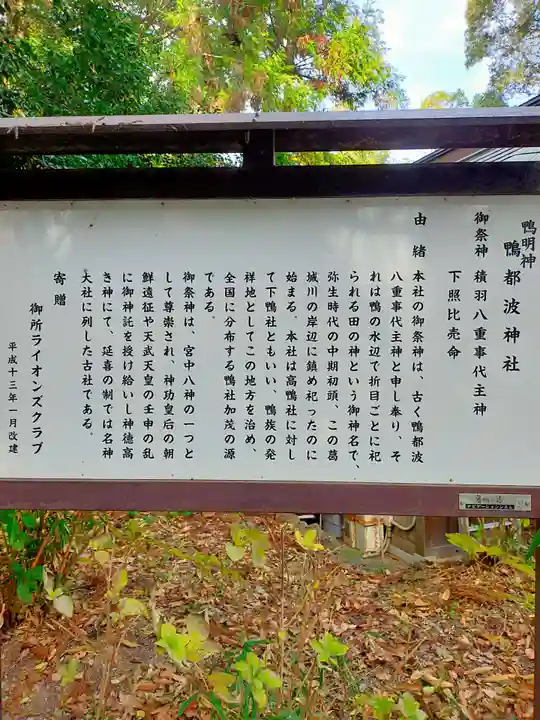 鴨明神
鴨都波神社
御祭神 積羽八重事代主神
下照比売命
由緒 本社の御祭神は、古く鴨都波
八重事代主神と申し奉り、そ
れは鴨の水辺で折目ごとに祀
られる田の神という御神名で、
弥生時代の中期初頭、この葛
城川の岸辺に鎮め祀ったのに
始まる。本社は高鴨社に対し
て下鴨社ともいい、鴨族の発
祥地としてこの地方を治め、
全国に分布する鴨社加茂の源
である。
御祭神は、宮中八神の一つと
して尊崇され、神功皇后の朝
鮮遠征や天武天皇の壬申の乱
に御神託を授け給いし神徳高
き神にて、延喜の制では名神
大社に列した古社である。
寄贈
御所ライオンズクラブ
平成十三年一月改建